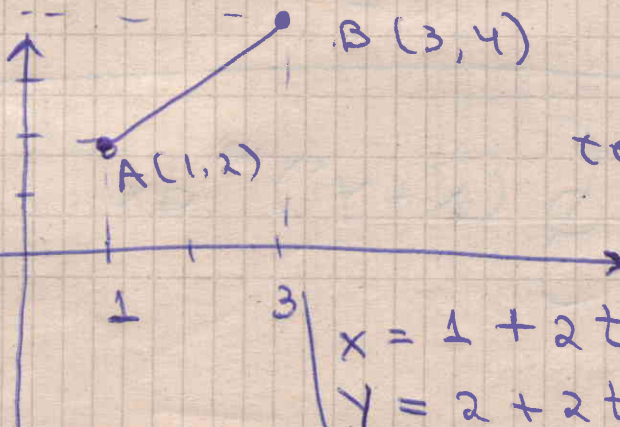 B (3, 4)
A (1, 2)
1 3
x = 1 + 2t
y = 2 + 2t